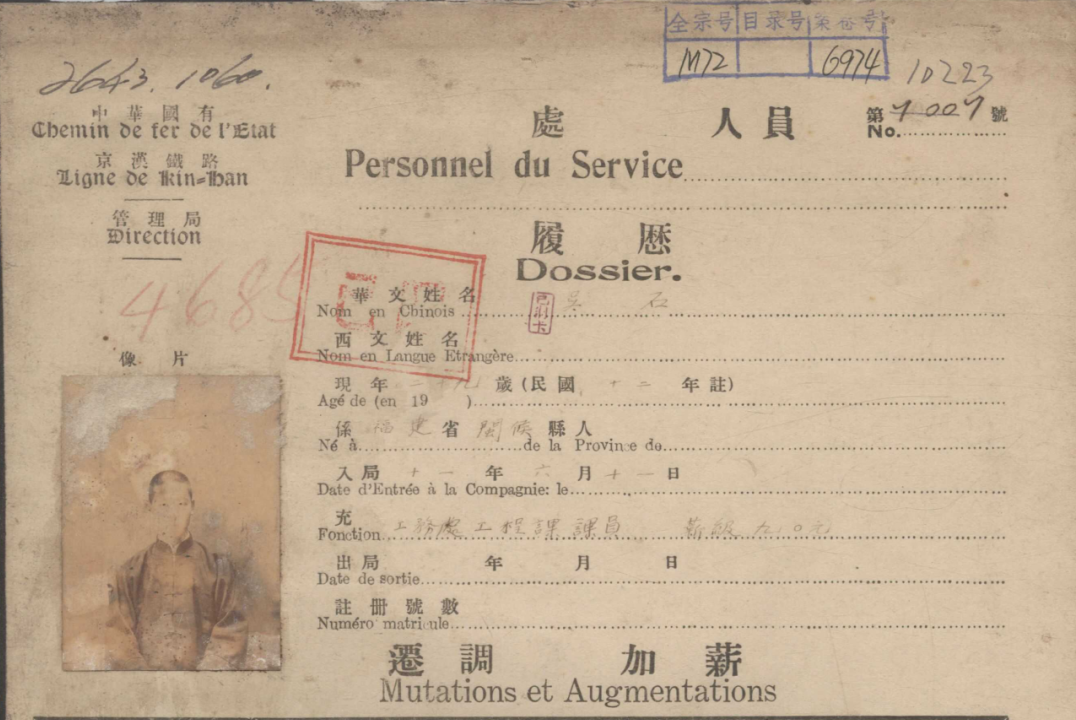 全宗号 目录号 案卷号
M72 6974
2643.1060. 10223
中華國有
Chemin de fer de l'Etat
京漢鐵路
Ligne de Kin-Han
管理局
Direction
處 人員 第 7007 號
No.
Personnel du Service
履歷
Dossier.
4685
華文姓名 吳石
Nom en Chinois
西文姓名
Nom en Langue Etrangère
像片
現年二十九歲(民國十二年註)
Agé de (en 19 )
係福建省閩侯縣人
Né à de la Province de
入局十一年六月十一日
Date d'Entrée à la Compagnie: le
充 工務處工程課課員 薪級九〇元
Fonction
出局 年 月 日
Date de sortie
註冊號數
Numéro matricule
遷調 加薪
Mutations et Augmentations